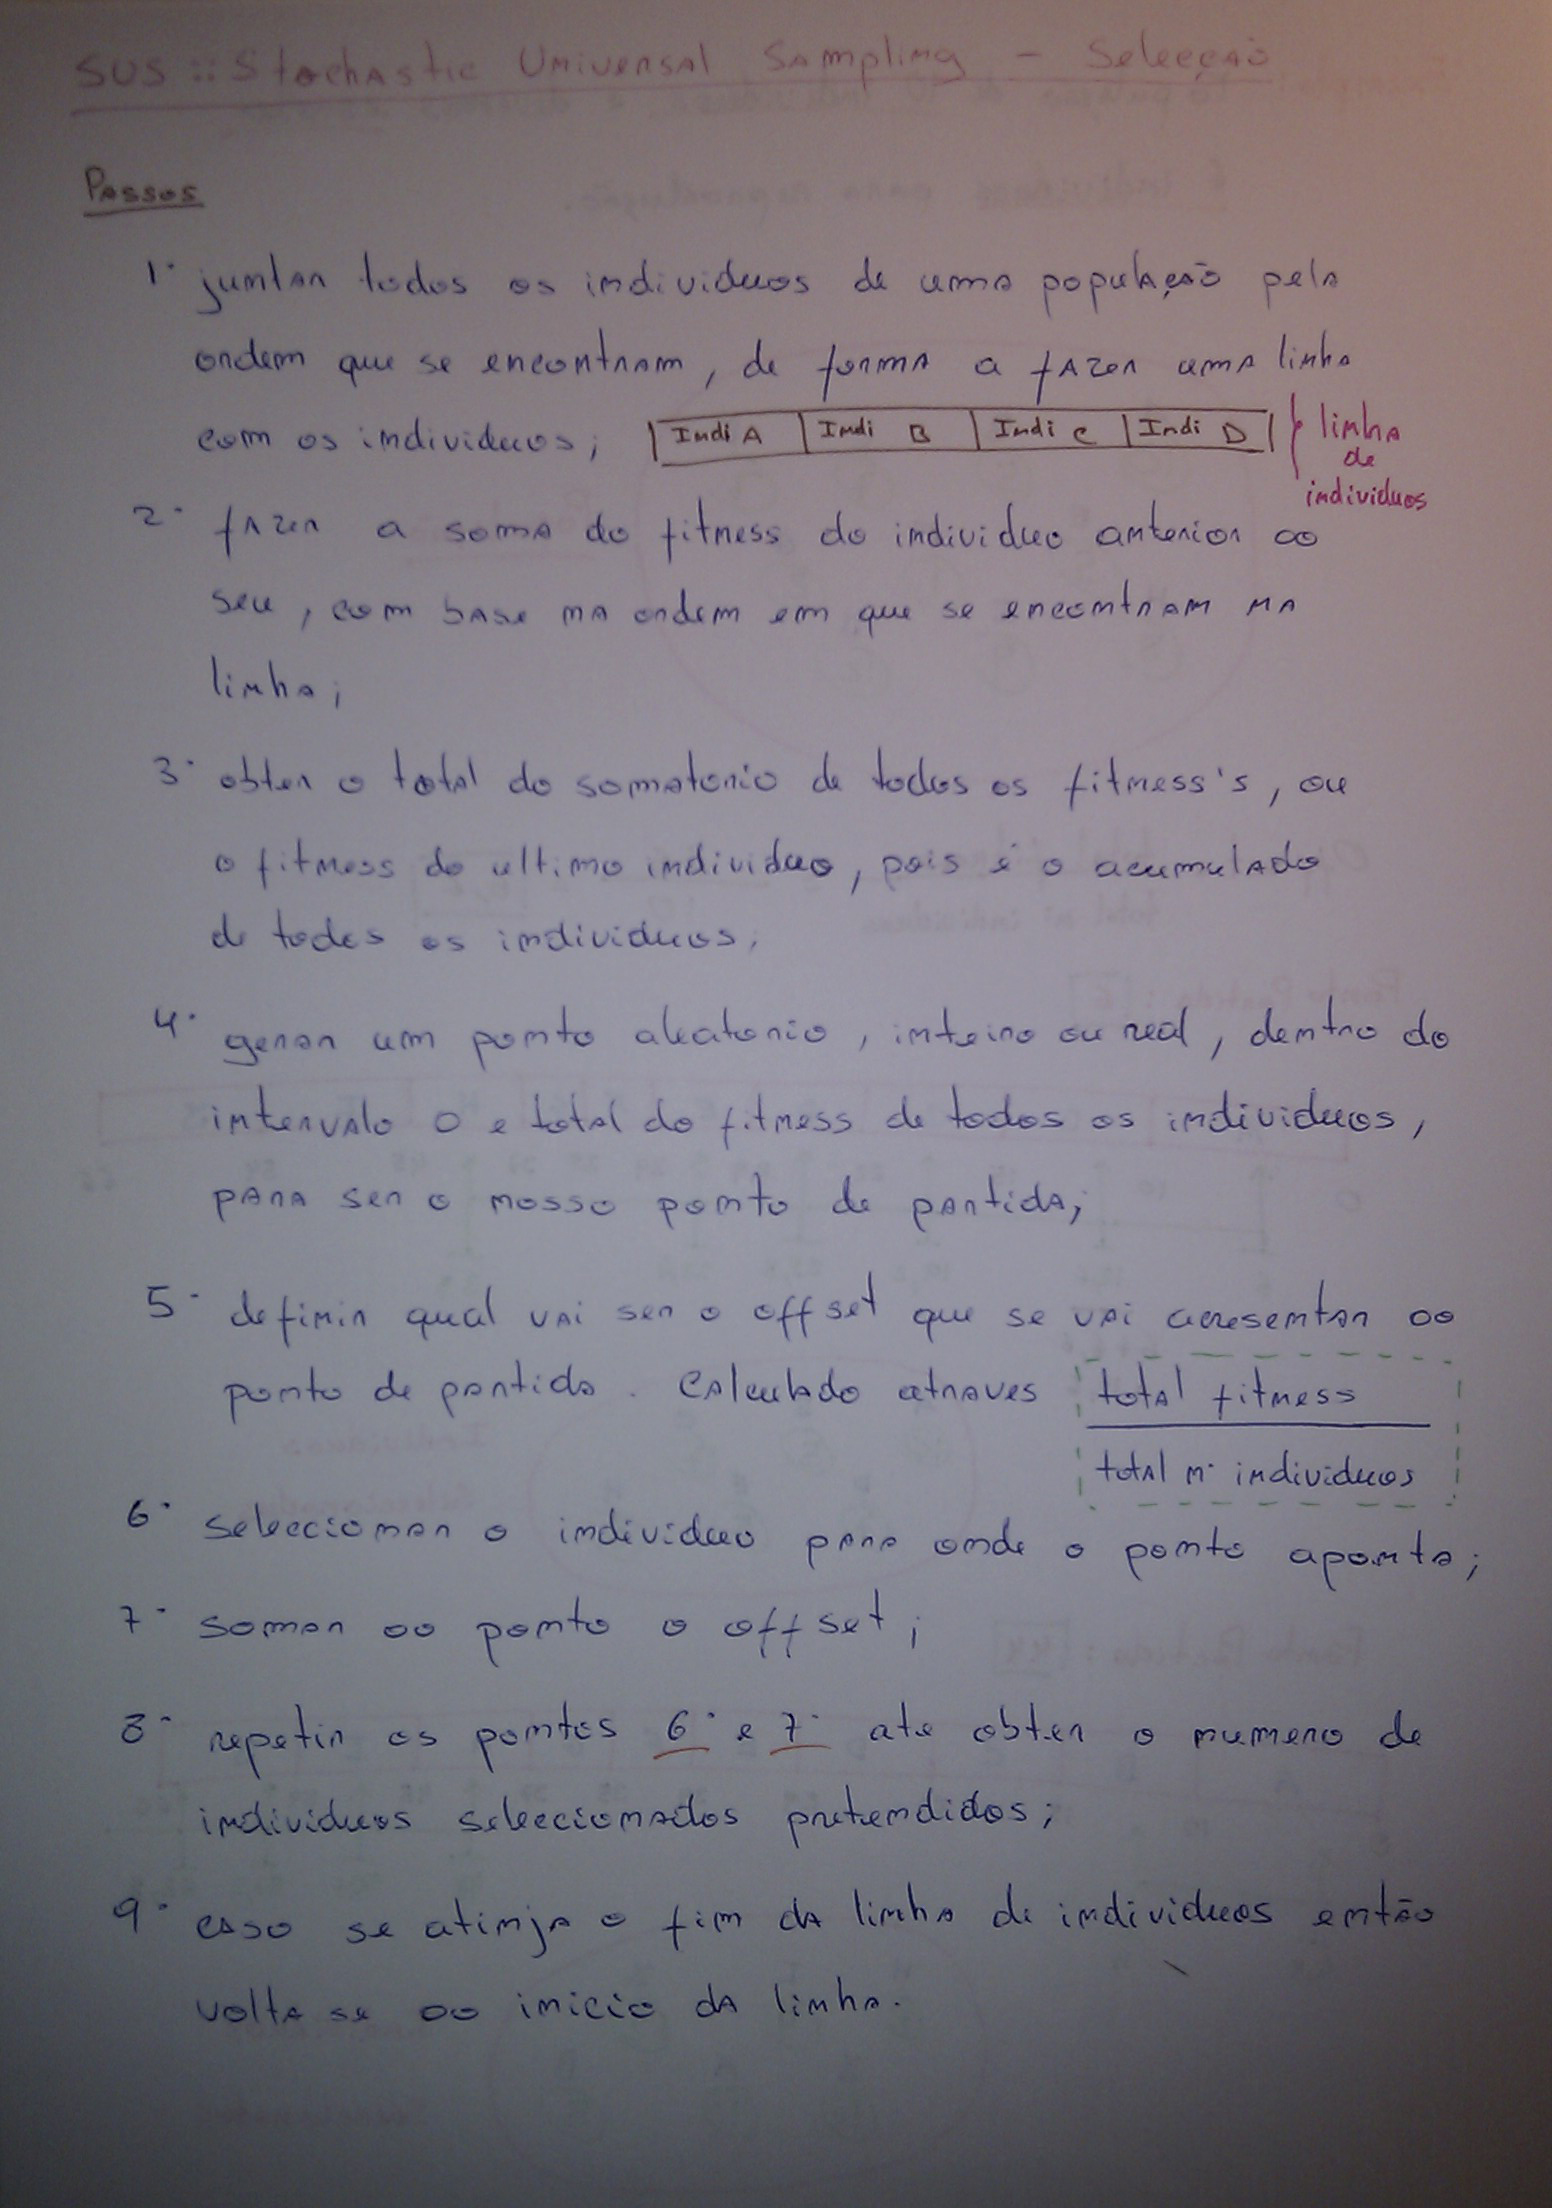 SUS :: Stochastic Universal Sampling - Selecção
Passos
1· juntar todos os individuos de uma população pela
ordem que se encontram, de forma a fazer uma linha
com os individuos; Indi A Indi B Indi C Indi D linha
de
individuos
2· fazer a soma do fitness do individuo anterior ao
seu, com base na ordem em que se encontram na
linha;
3· obter o total do somatorio de todos os fitness's, ou
o fitness do ultimo individuo, pois é o acumulado
de todos os individuos;
4· gerar um ponto aleatorio, inteiro ou real, dentro do
intervalo 0 e total do fitness de todos os individuos,
para ser o nosso ponto de partida;
5· definir qual vai ser o offset que se vai acresentar ao
ponto de partida. Calculado atraves total fitness
total n· individuos
6· seleccionar o individuo para onde o ponto aponta;
7· somar ao ponto o offset;
8· repetir os pontos 6· e 7· ate obter o numero de
individuos seleccionados pretendidos;
9· caso se atinja o fim da linha de individuos então
volta se ao inicio da linha.